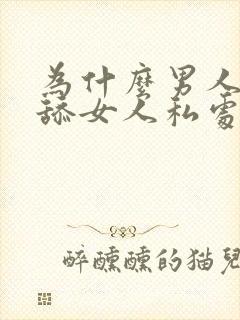 為什麼男人
舔女人私處
醉醺醺的猫兒